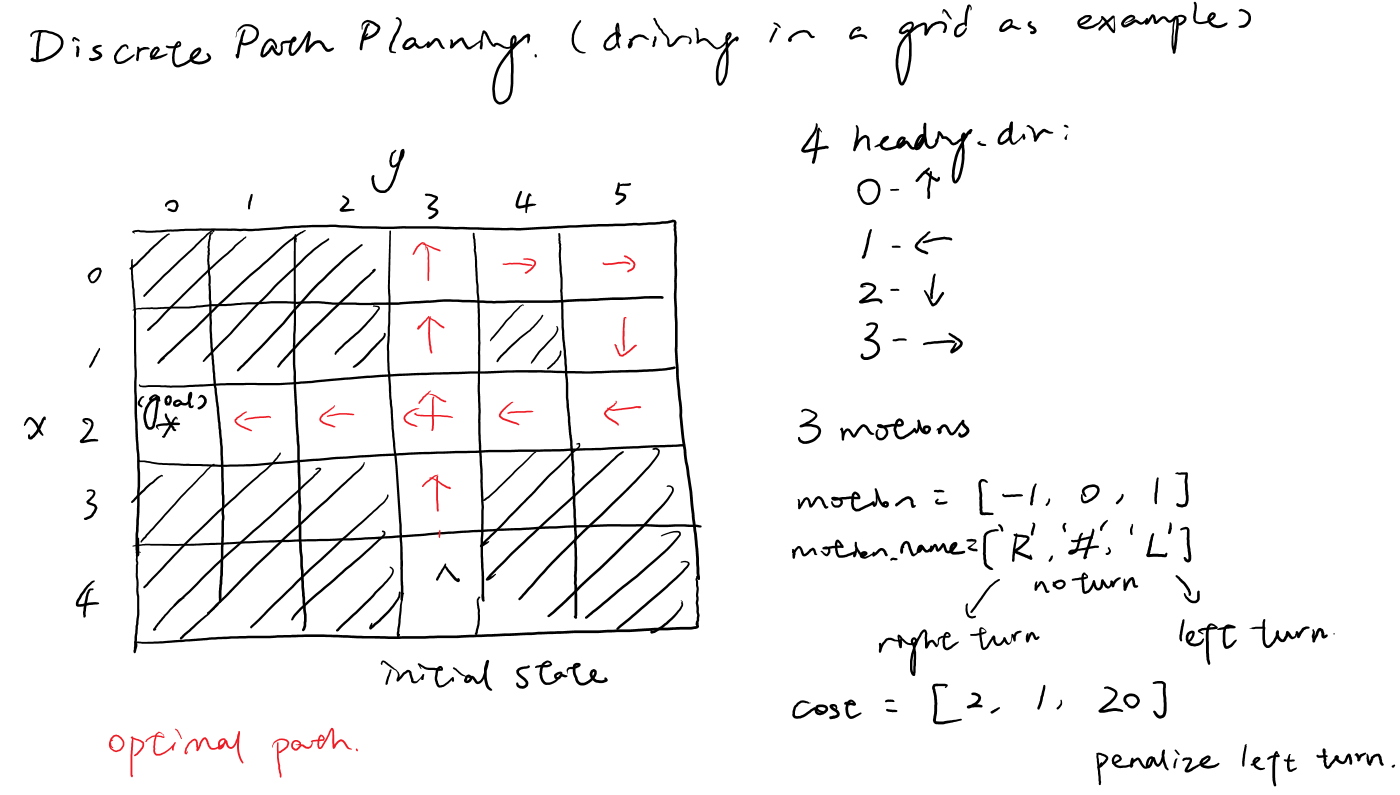 Discrete Path Planning. (driving in a grid as example)
4 heading-dir:
0 - ↑
1 - ←
2 - ↓
3 - →
y
0 1 2 3 4 5
0 ↑ → →
1 ↑ ↑ ↓
x 2 (goal) * ← ← ← ↑ ← ←
3 ↑
4 ^
initial state
optimal path.
3 motions
motion = [-1, 0, 1]
motion_name=['R', '#', 'L']
no turn
right turn left turn.
cost = [2, 1, 20]
penalize left turn.